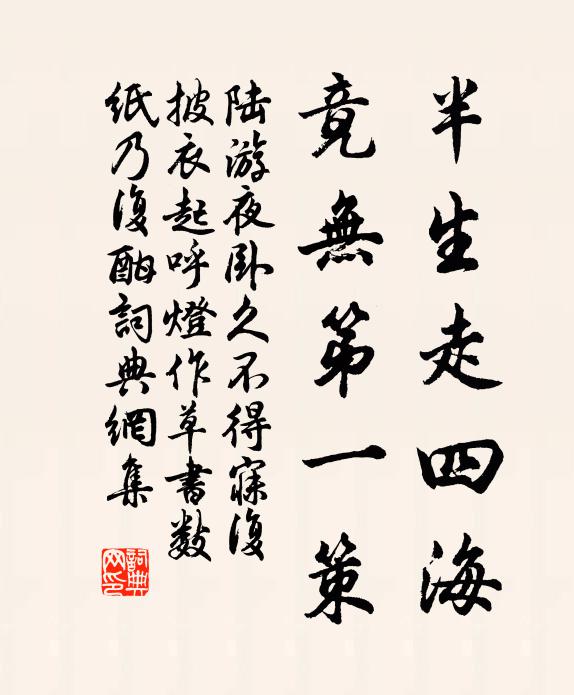 半生走四海
竟無第一策
陆游夜卧久不得寐復
披衣起呼燈作草書数
紙乃復酣詞典網集
詞典
网印